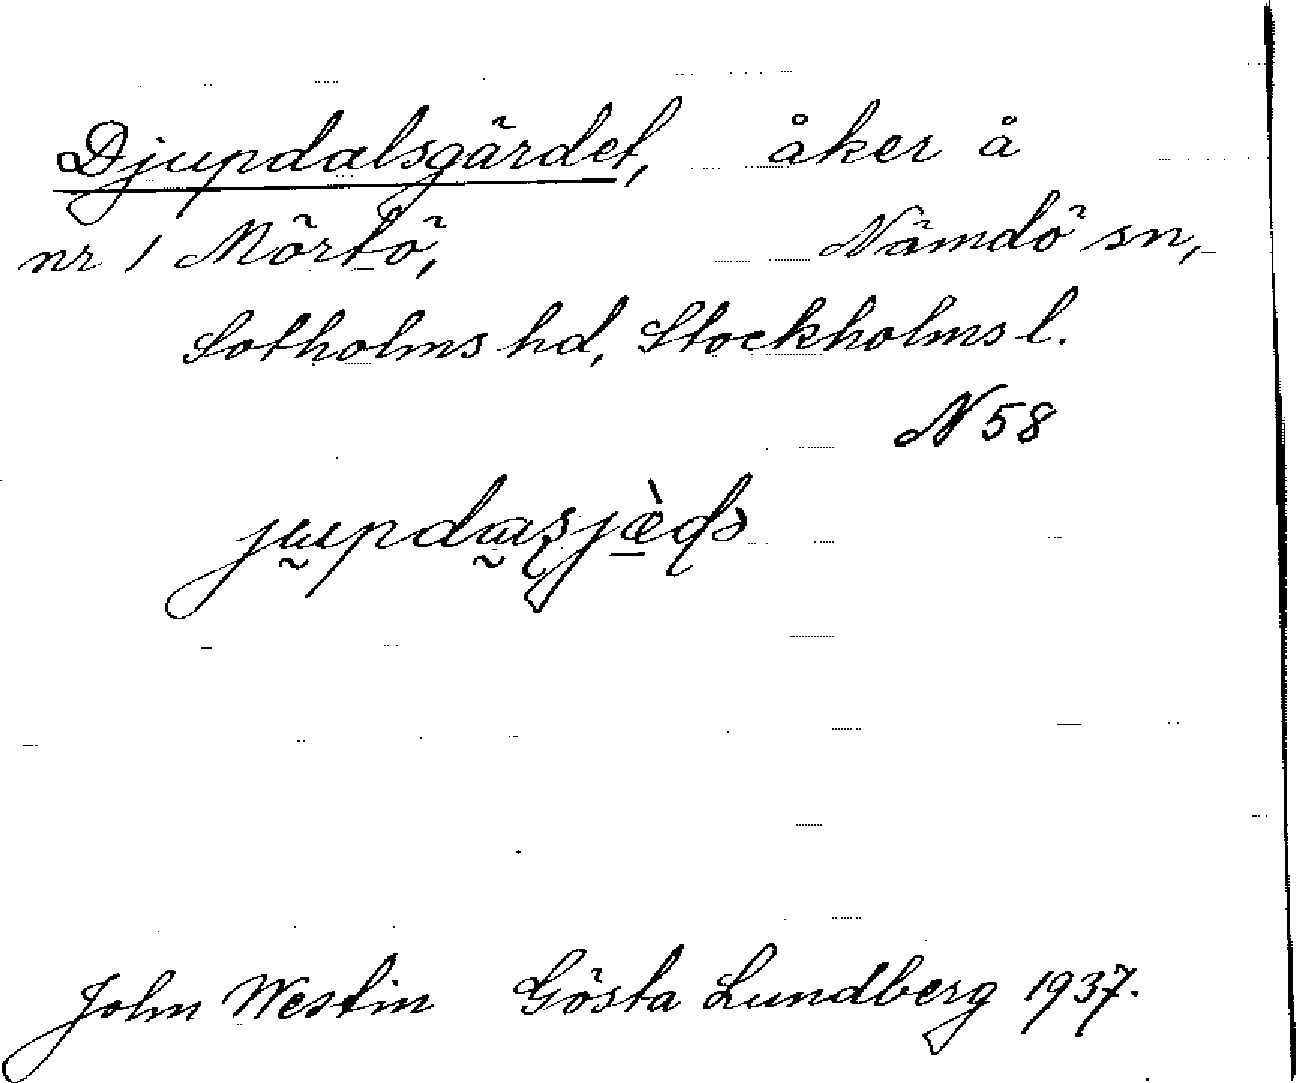 Djupdalsgärdet, åker å
nr 1 Mörtö, Nämdö sn,
Sotholms hd, Stockholms l.
N 58
John Westin Gösta Lundberg 1937.